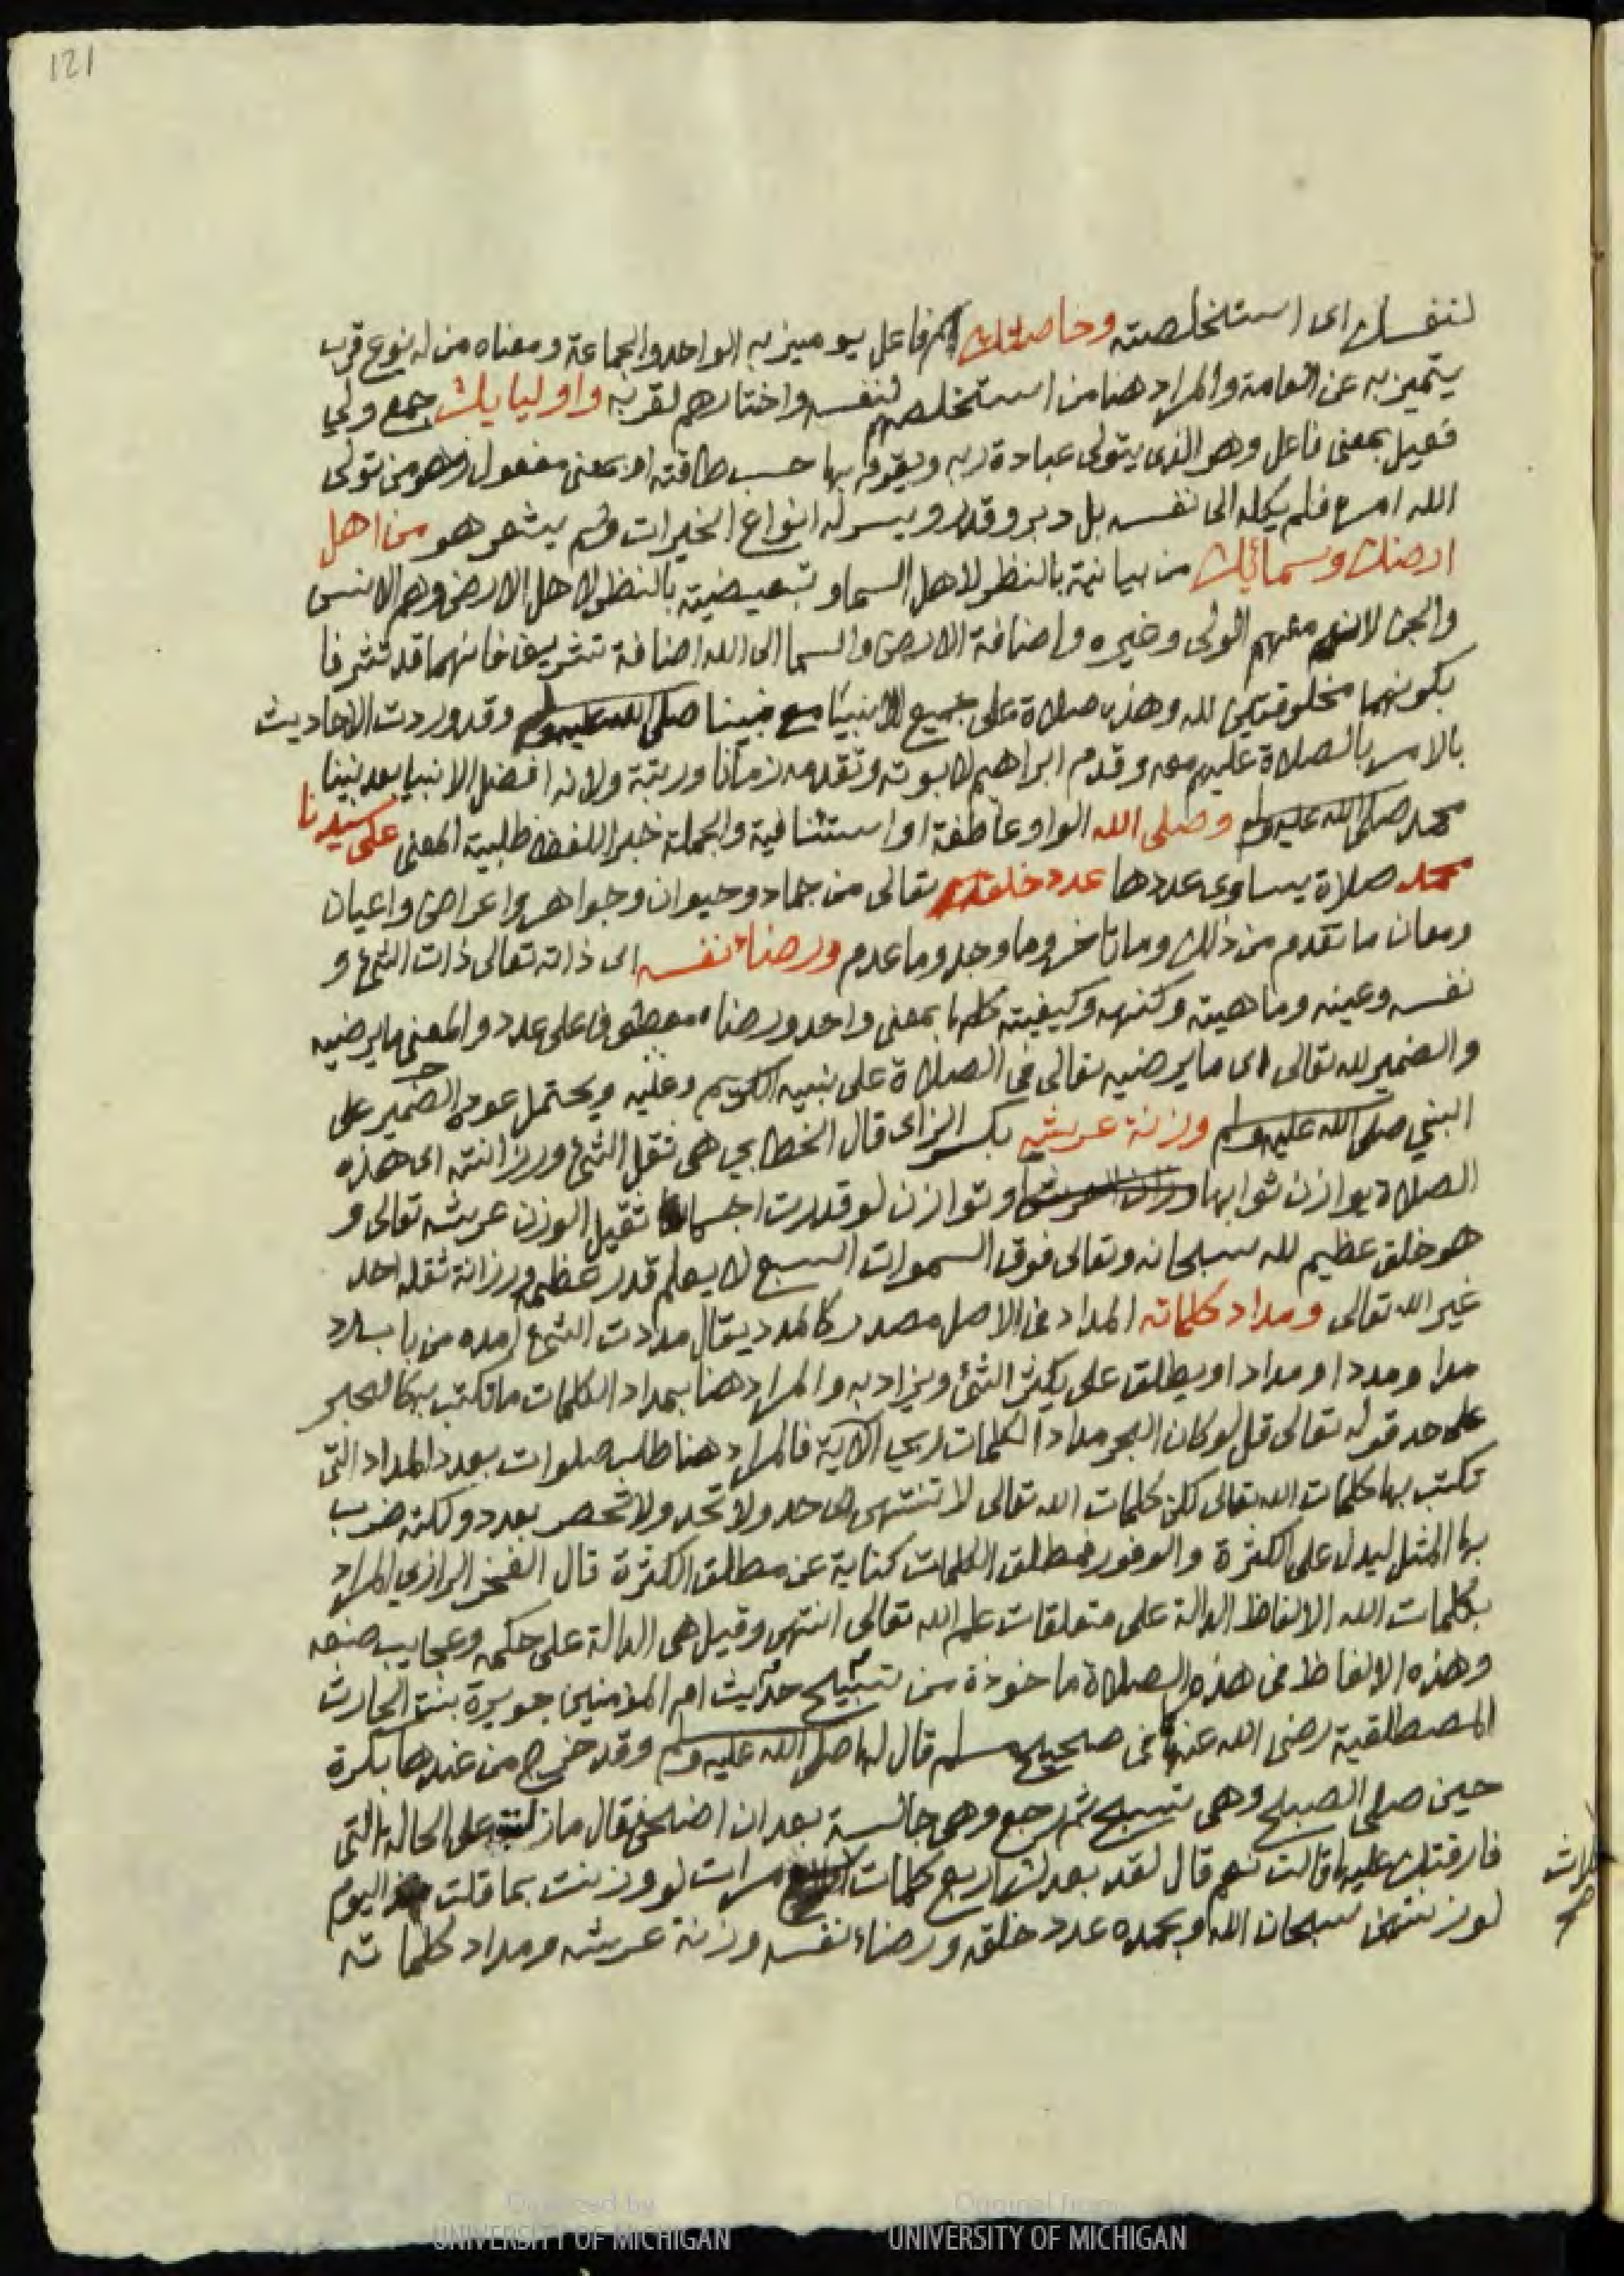 121
لنفسك اى استخلصته وخاصتك اسم فاعل يوميز به الواحد والجماعة ومعناه من له نوع قرب
يتميز به عن العامة والمراد هنا من استخلصهم لنفسه واختارهم لقربه واوليايك جمع ولي
فعيل بمعنى فاعل وهو الذى يتولى عبادة ربه ويقوم بها حسب طاقته او بمعنى مفعول وهو من تولى
الله امره فلم يكله الى نفسه بل دبره وقدره ويسر له انواع الخيرات ولم يشعر هو من اهل
ارضك وسمائك من بيانية بالنظر لاهل السما وتبعيضية بالنظر لاهل الارض وهم الانس
والجن لانهم منهم الولى وغيره واضافة الارض والسما الى الله اضافة تشريف فانهما قد تشرفا
بكونهما مخلوقتين لله وهذه صلاة على جميع الانبيا مع نبينا صلى الله عليه وسلم وقد وردت الاحاديث
بالامر بالصلاة عليهم معه وقدم ابراهيم لابوته وتقدمه زمانا ورتبة ولانه افضل الانبيا بعد نبينا
محمد صلى الله عليه وسلم وصلى الله الواو عاطفة او استئنافية والجملة خبر اللفظ طلبية المعنى على سيدنا
محمد صلاة يساوى عددها عدد خلقه تعالى من جماد وحيوان وجواهر واعراض واعيان
ومعان ما تقدم من ذلك وما تاخر وما وجد وما عدم ورضاء نفسه اى ذاته تعالى ذات الشئ و
نفسه وعينه وماهيته وكنهه وكيفيته كلها بمعنى واحد ورضاه معطوف على عدد والمعنى ما يرضيه
والضمير لله تعالى اى ما يرضيه تعالى فى الصلاة على نبيه الكريم وعليه ويحتمل عود الضمير على
النبي صلى الله عليه وسلم وزنة عرشه بكسر الزاى قال الخطابي هى ثقل الشئ ورزانته اى هذه
الصلاة يوازن ثوابها وزان العرش او توازن لو قدرت اجساما ثقيل الوزن عرشه تعالى و
هو خلق عظيم لله سبحانه وتعالى فوق السموات السبع لا يعلم قدر عظمه ورزانة ثقله احد
غير الله تعالى ومداد كلماته المداد فى الاصل مصدر كالمدد يقال مددت الشئ امده من باب رد
مدا ومددا ومدادا ويطلق على يكثر الشئ ويزاد به والمراد هنا بمداد الكلمات ما تكتب به كالحبر
على حد قوله تعالى قل لو كان البحر مدادا لكلمات ربي الاية فالمراد هنا طلب صلوات بعدد المداد التى
تكتب بها كلمات الله تعالى لكن كلمات الله تعالى لا تنتهى الى حد ولا تحد ولا تحصر بعدد ولكنه ضرب
بها المثل ليدل على الكثرة والوفور فمطلق الكلمات كناية عن مطلق الكثرة قال الفخر الرازي المراد
بكلمات الله الالفاظ الدالة على متعلقات علم الله تعالى انتهى وقيل هى الدالة على حكمه وعجايب صنعه
وهذه الالفاظ فى هذه الصلاة ماخوذة من تسبيح حديث ام المؤمنين جويرية بنت الحارث
المصطلقية رضى الله عنها فى صحيح مسلم قال لها صلى الله عليه وسلم وقد خرج من عندها بكرة
حين صلى الصبح وهى تسبح ثم رجع وهى جالسة بعد ان اضحى فقال ما زلت على الحالة التى
فارقتك عليها قالت نعم قال لقد بعدك اربع كلمات مرات لو وزنت بما قلت هذا اليوم
لوزنتهن سبحان الله وبحمده عدد خلقه ورضاء نفسه وزنة عرشه ومداد كلماته
Digitized by
UNIVERSITY OF MICHIGAN
Original from
UNIVERSITY OF MICHIGAN